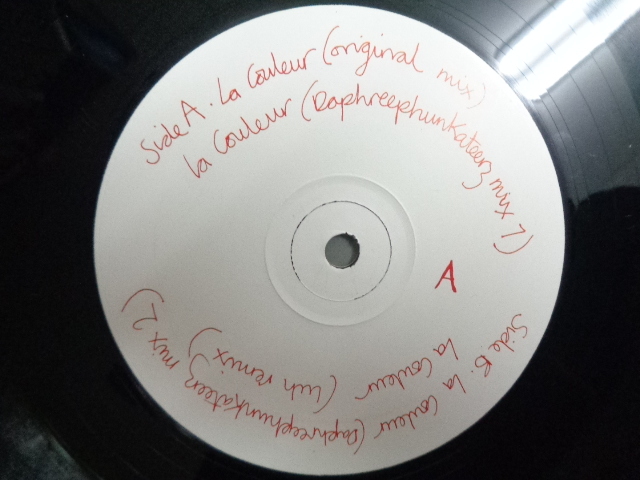 Side A. La Couleur (original mix)
La Couleur (Daphreephunkateerz mix 1)
A
Side B. La Couleur (Daphreephunkateerz mix 2)
La Couleur (remix)